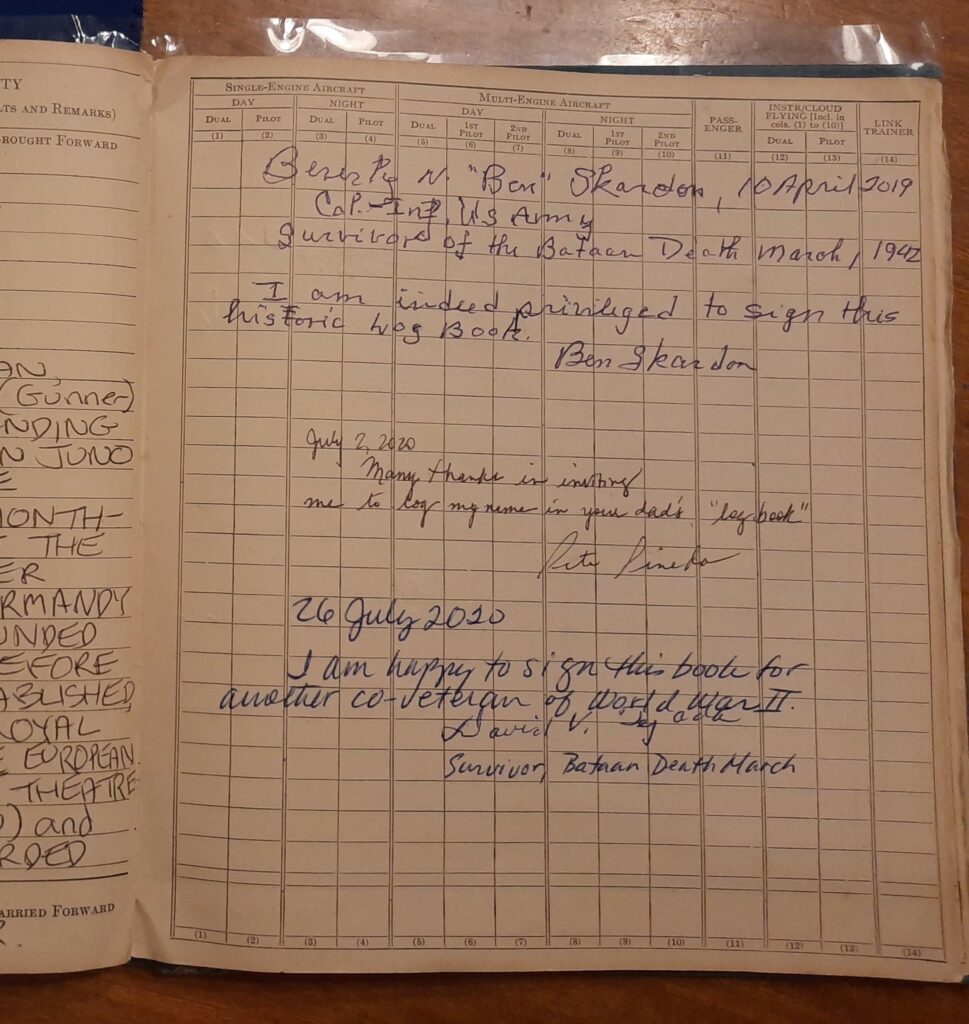 TY
LTS AND REMARKS)
ROUGHT FORWARD
AN,
(GUNNER)
NDING
N JUNO
E
MONTH-
THE
ER
RMANDY
UNDED
EFORE
ABLISHED,
OYAL
E EUROPEAN
THEATRE
) and
RDED
ARRIED FORWARD
R.
SINGLE-ENGINE AIRCRAFT MULTI-ENGINE AIRCRAFT PASS-ENGER INSTR/CLOUD FLYING [Incl. in cols. (1) to (10)] LINK TRAINER
DAY NIGHT DAY NIGHT
DUAL PILOT DUAL PILOT DUAL 1ST PILOT 2ND PILOT DUAL 1ST PILOT 2ND PILOT DUAL PILOT
(1) (2) (3) (4) (5) (6) (7) (8) (9) (10) (11) (12) (13) (14)
Beverly N. "Ben" Skardon, 10 April 2019
Col. Inf, US Army
Survivor of the Bataan Death March, 1942
I am indeed privileged to sign this
historic Log Book.
Ben Skardon
July 2, 2020
Many thanks in inviting
me to log my name in your dad's "log book"
Pineda
26 July 2020
I am happy to sign this book for
another co-veteran of World War II.
David V.
Survivor, Bataan Death March
(1) (2) (3) (4) (5) (6) (7) (8) (9) (10) (11) (12) (13) (14)